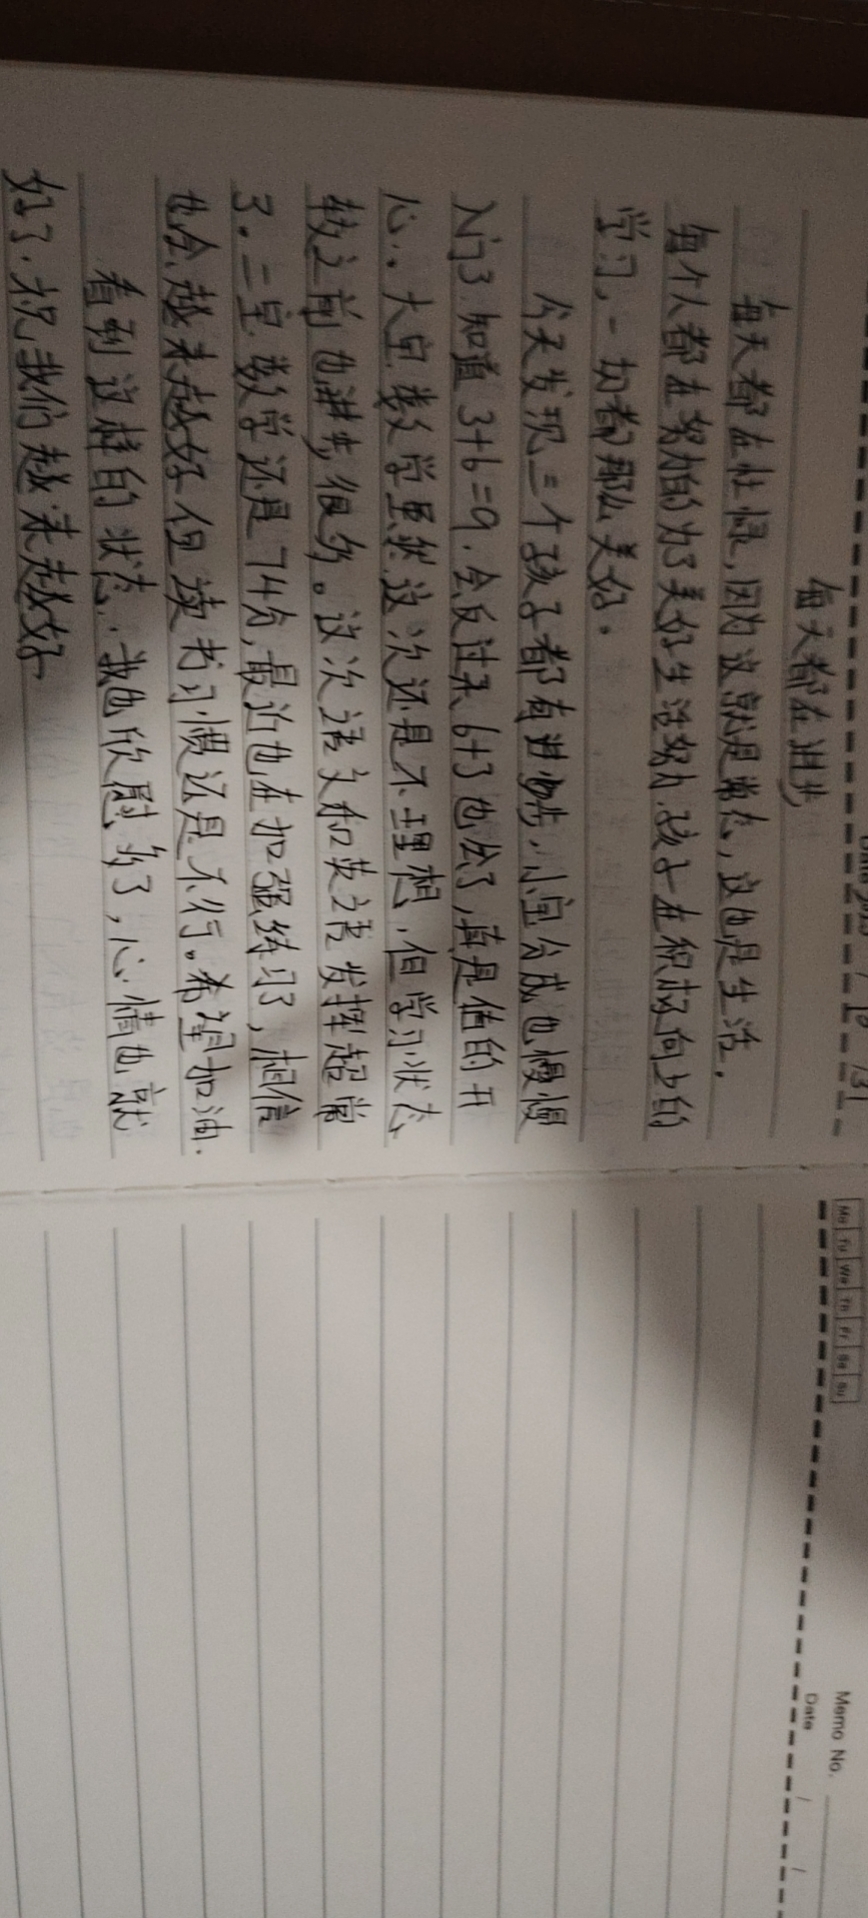 每天都在进步
每天都在忙碌,因为这就是常态,这也是生活.
每个人都在努力的为了美好生活努力.孩子在积极向上的
学习,一切都那么美好.
今天发现三个孩子都有进步,小宝分成也慢慢
入门了.知道3+6=9.会反过来6+3也会了,真是值的开
心.大宝数学虽然这次还是不理想,但学习状态
较之前也进步很多。这次语文和英语发挥超常
了.二宝数学还是74分,最近也在加强练习了,相信
也会越来越好但读书习惯还是不行。希望加油.
看到这样的状态.我也欣慰多了,心情也就
好了.祝我们越来越好
Mo Tu We Th Fr Sa Su
Memo No.
Date / /